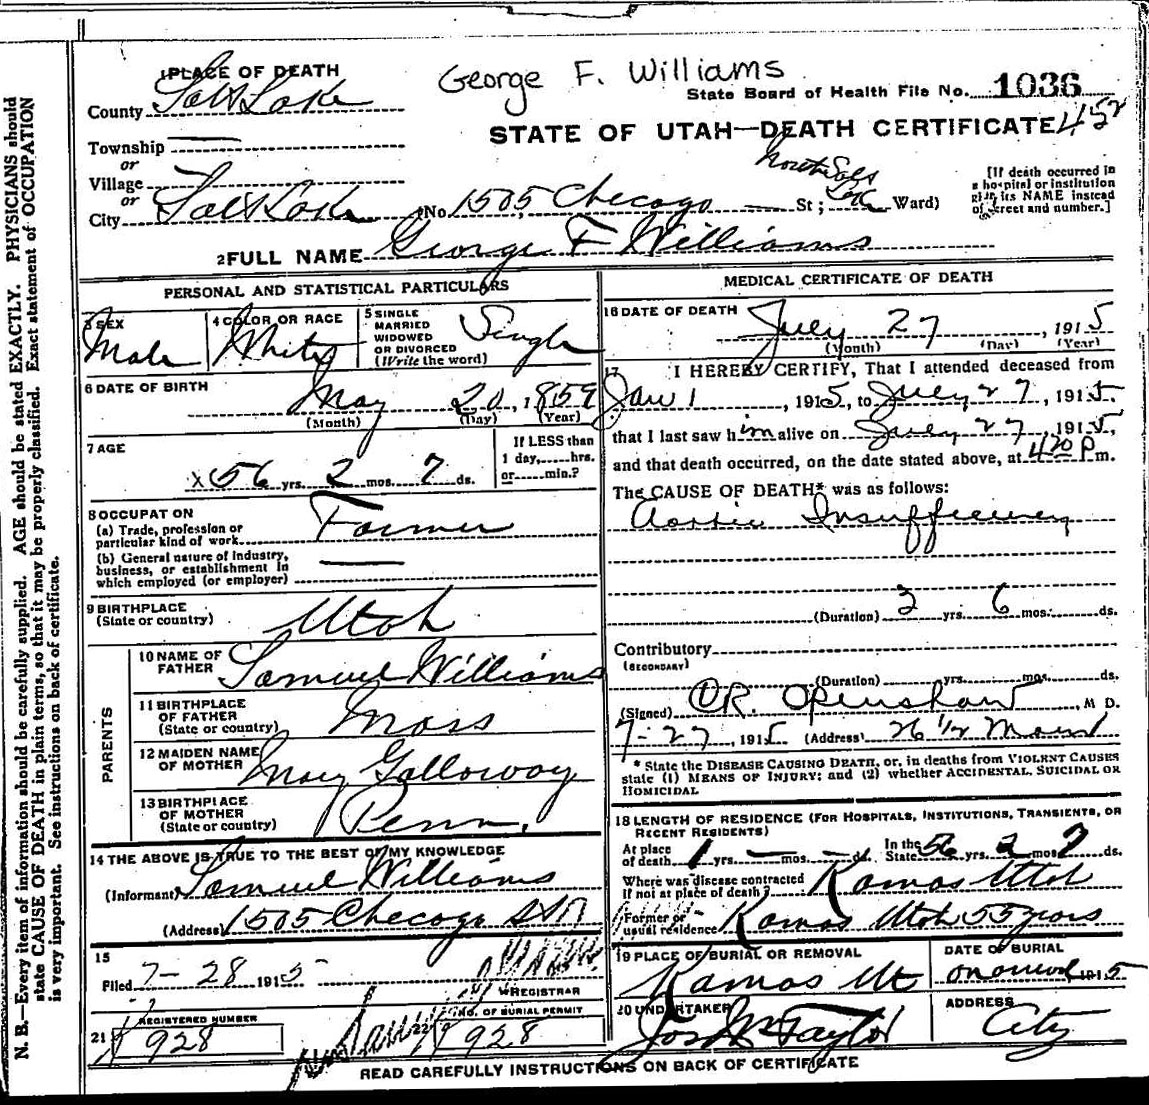 George F. Williams
1 PLACE OF DEATH
State Board of Health File No. 1036
County Salt Lake
STATE OF UTAH—DEATH CERTIFICATE 452
Township —
or
Village
or
City Salt Lake (No 1505 Checago — St; North Salt Lake Ward)
[If death occurred in
a hospital or institution
give its NAME instead
of street and number.]
2 FULL NAME George F Williams
PERSONAL AND STATISTICAL PARTICULARS
3 SEX
Male
4 COLOR OR RACE
White
5 SINGLE
MARRIED
WIDOWED
OR DIVORCED
(Write the word)
Single
6 DATE OF BIRTH
May 20, 1859
(Month) (Day) (Year)
7 AGE
If LESS than
1 day, hrs.
or min.?
x 56 yrs. 2 mos. 7 ds.
8 OCCUPATION
(a) Trade, profession or
particular kind of work Farmer
(b) General nature of industry,
business, or establishment in
which employed (or employer) —
9 BIRTHPLACE
(State or country) Utah
PARENTS
10 NAME OF
FATHER Samuel Williams
11 BIRTHPLACE
OF FATHER
(State or country) Mass
12 MAIDEN NAME
OF MOTHER Mary Galloway
13 BIRTHPLACE
OF MOTHER
(State or country) Penn.
14 THE ABOVE IS TRUE TO THE BEST OF MY KNOWLEDGE
(Informant) Samuel Williams
(Address) 1505 Checago
15
Filed 7-28 1915
REGISTRAR
REGISTERED NUMBER
21 928
NO. OF BURIAL PERMIT
22 928
MEDICAL CERTIFICATE OF DEATH
16 DATE OF DEATH
July 27, 1915
(Month) (Day) (Year)
17 I HEREBY CERTIFY, That I attended deceased from
Jan 1, 1915, to July 27, 1915.
that I last saw him alive on July 27, 1915,
and that death occurred, on the date stated above, at 420 P m.
The CAUSE OF DEATH* was as follows:
Aortic Insufficiency
(Duration) 2 yrs. 6 mos. ds.
Contributory
(SECONDARY)
(Duration) yrs. mos. ds.
(Signed) C R. Openshaw, M D.
7-27, 1915 (Address) 26 1/2 Main
* State the DISEASE CAUSING DEATH, or, in deaths from VIOLENT CAUSES
state (1) MEANS OF INJURY; and (2) whether ACCIDENTAL, SUICIDAL OR
HOMICIDAL
18 LENGTH OF RESIDENCE (FOR HOSPITALS, INSTITUTIONS, TRANSIENTS, OR
RECENT RESIDENTS)
At place
of death 1 yrs. — mos. — d.
In the
State 56 yrs. 2 mos 7 ds.
Where was disease contracted
if not at place of death? Kamas Utah
Former or
usual residence Kamas Utah 55 years
19 PLACE OF BURIAL OR REMOVAL
Kamas Ut
DATE OF BURIAL
on arrival 1915
20 UNDERTAKER
Jos Wm Taylor
ADDRESS
City
READ CAREFULLY INSTRUCTIONS ON BACK OF CERTIFICATE
N. B.—Every item of information should be carefully supplied. AGE should be stated EXACTLY. PHYSICIANS should
state CAUSE OF DEATH in plain terms, so that it may be properly classified. Exact statement of OCCUPATION
is very important. See instructions on back of certificate.